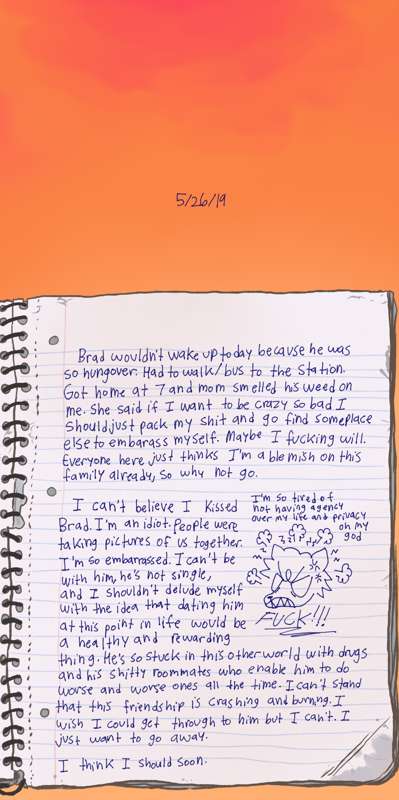 5/26/19
Brad wouldn't wake up today because he was
so hungover. Had to walk/bus to the station.
Got home at 7 and mom smelled his weed on
me. She said if I want to be crazy so bad I
should just pack my shit and go find someplace
else to embarass myself. Maybe I fucking will.
Everyone here just thinks I'm a blemish on this
family already, so why not go.
I can't believe I kissed
Brad. I'm an idiot. People were
taking pictures of us together.
I'm so embarrassed. I can't be
with him, he's not single,
and I shouldn't delude myself
with the idea that dating him
at this point in life would be
a healthy and rewarding
thing. He's so stuck in this other world with drugs
and his shitty roommates who enable him to do
worse and worse ones all the time. I can't stand
that this friendship is crashing and burning. I
wish I could get through to him but I can't. I
just want to go away.
I think I should soon.
I'm so tired of
not having agency
over my life and privacy
oh my
god
FUCK!!!